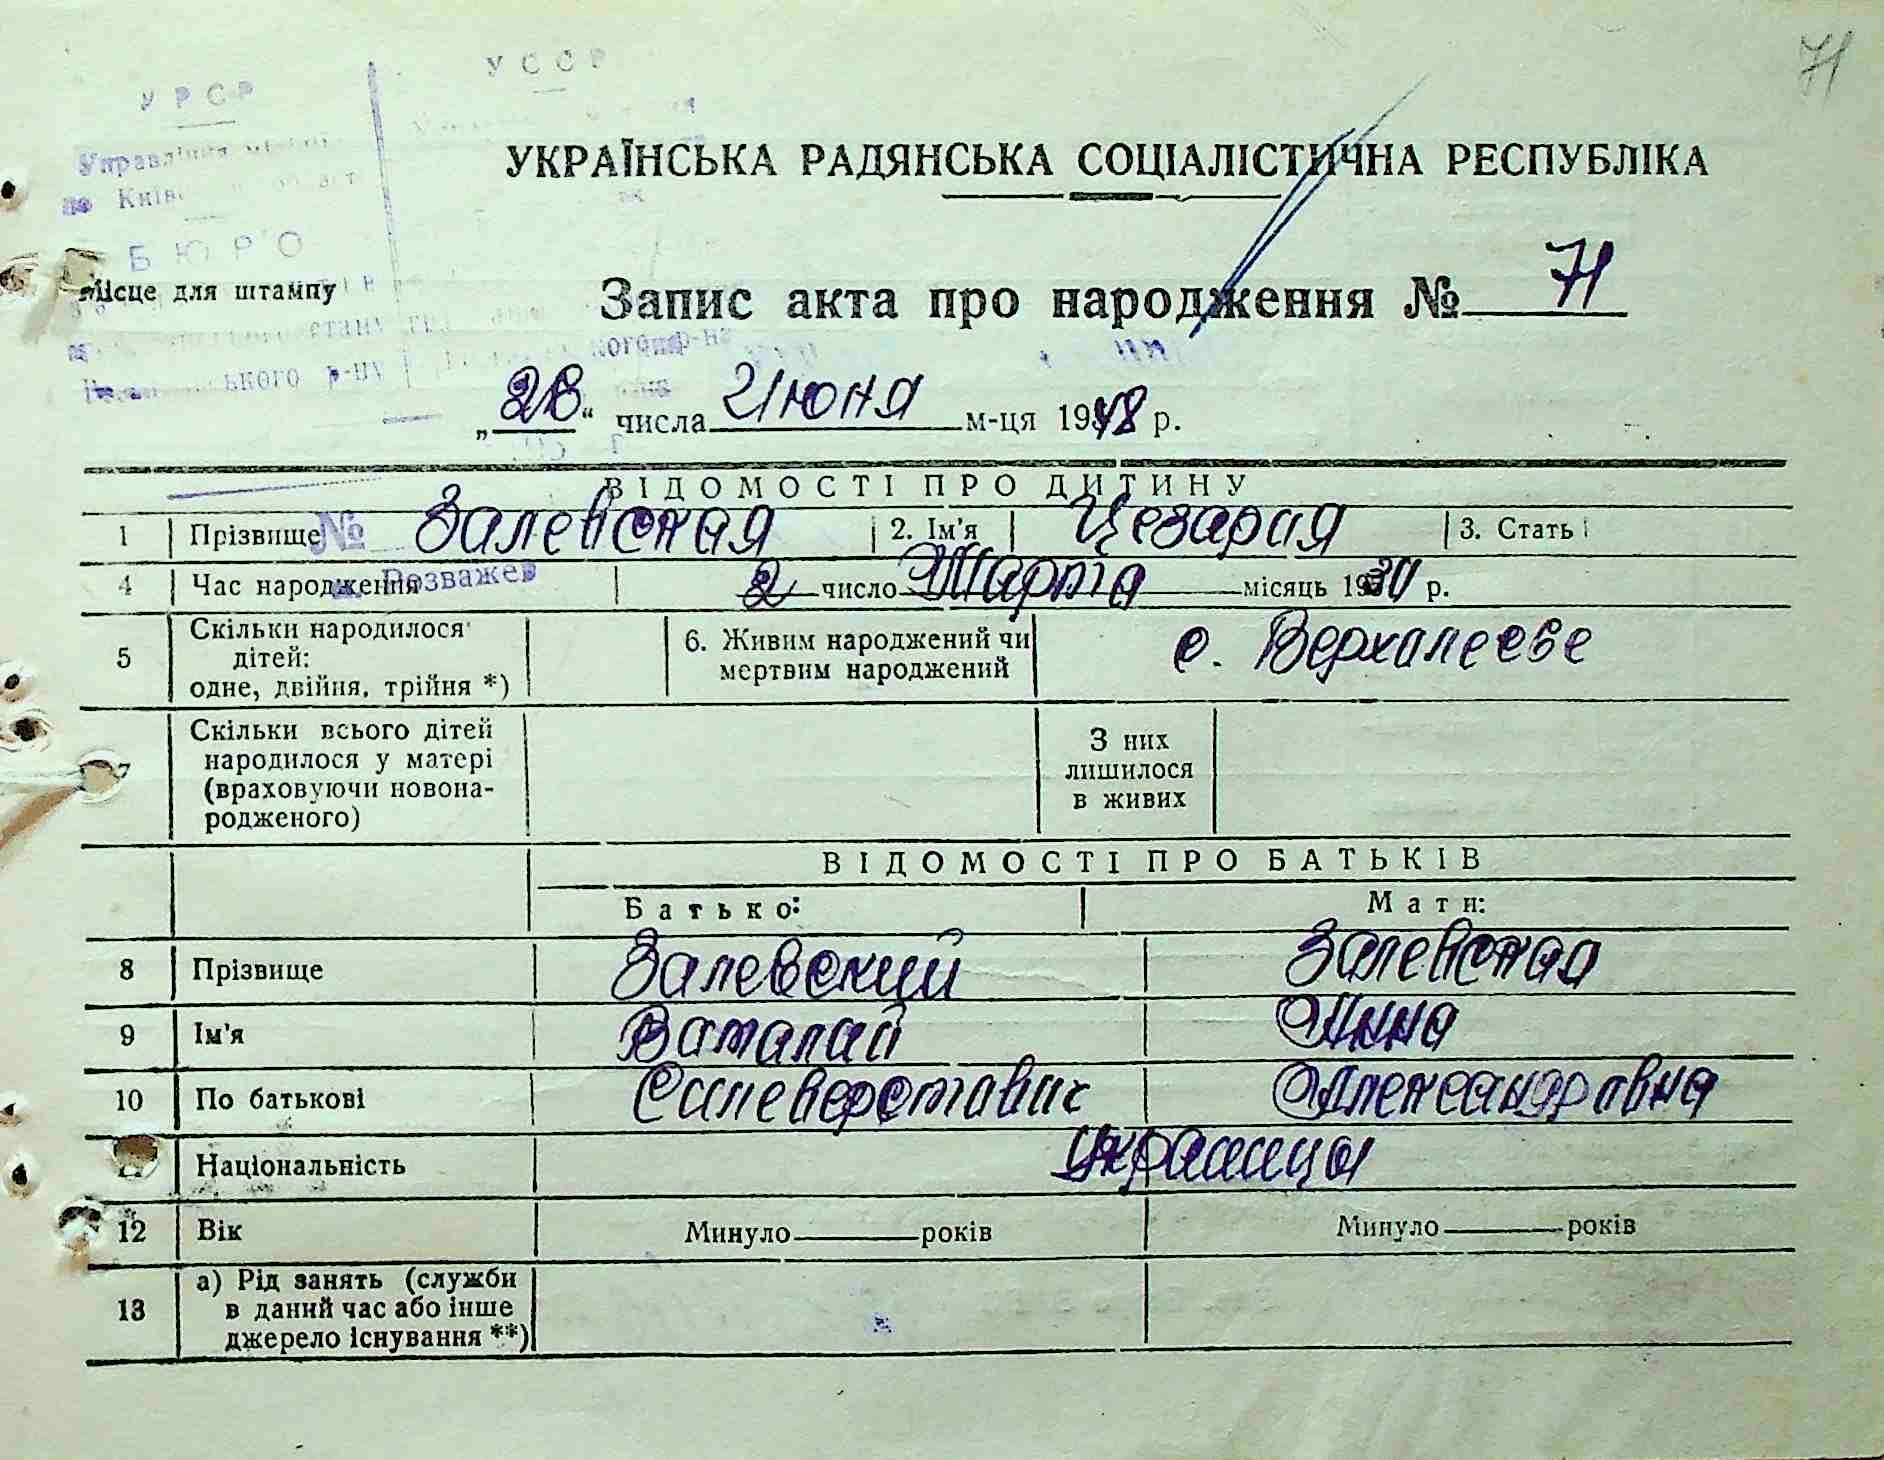 71
УРСР
УССР
Управління
по Київ
БЮРО
Місце для штампу
УКРАЇНСЬКА РАДЯНСЬКА СОЦІАЛІСТИЧНА РЕСПУБЛІКА
Запис акта про народження № 71
„28“ числа Июня м-ця 1948 р.
ВІДОМОСТІ ПРО ДИТИНУ
1 Прізвище Залевская 2. Ім'я Цезария 3. Стать
№
4 Час народження 2 число Марта місяць 1930 р.
Розважев
5 Скільки народилося дітей: одне, двійня, трійня *) 6. Живим народжений чи мертвим народжений с. Верхалесье
7 Скільки всього дітей народилося у матері (враховуючи новонародженого) З них лишилося в живих
ВІДОМОСТІ ПРО БАТЬКІВ
Батько: Мати:
8 Прізвище Залевский Залевская
9 Ім'я Виталий Анна
10 По батькові Силеверстович Александровна
Національність Украинцы
12 Вік Минуло років Минуло років
13 а) Рід занять (служби в даний час або інше джерело існування **)